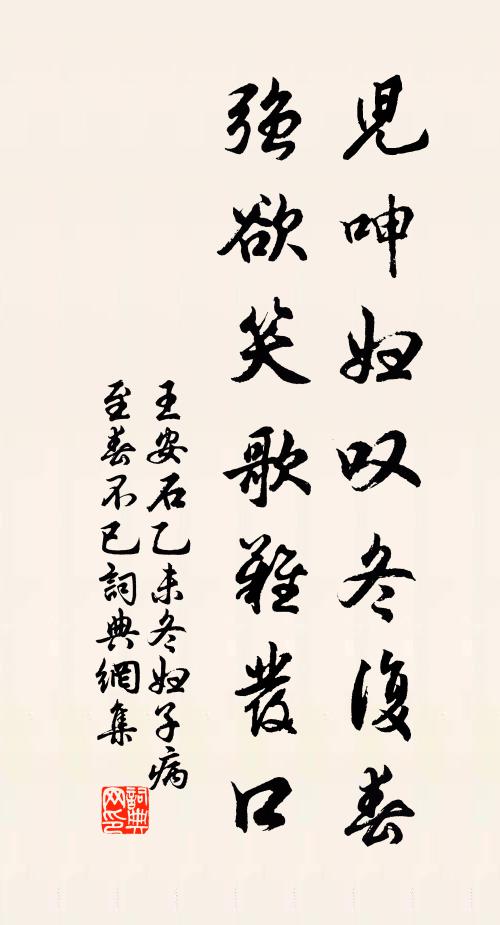 児呻妇叹冬復春
強欲笑歌難發口
王安石乙未冬妇子病
至春不已詞典網集
詞典
网印